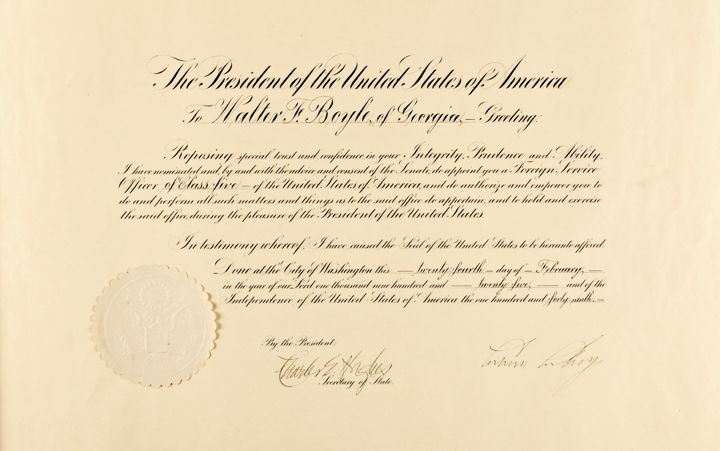 The President of the United States of America
To Walter F. Boyle, of Georgia, — Greeting:
Reposing special trust and confidence in your Integrity, Prudence and Ability,
I have nominated and, by and with the advice and consent of the Senate, do appoint you a Foreign Service
Officer of Class five — of the United States of America, and do authorize and empower you to
do and perform all such matters and things as to the said office do appertain, and to hold and exercise
the said office, during the pleasure of the President of the United States.
In testimony whereof, I have caused the Seal of the United States to be hereunto affixed.
Done at the City of Washington this — twenty fourth — day of — February, —
in the year of our Lord one thousand nine hundred and — twenty five, — and of the
Independence of the United States of America the one hundred and forty ninth. —
By the President:
Charles E. Hughes
Secretary of State.